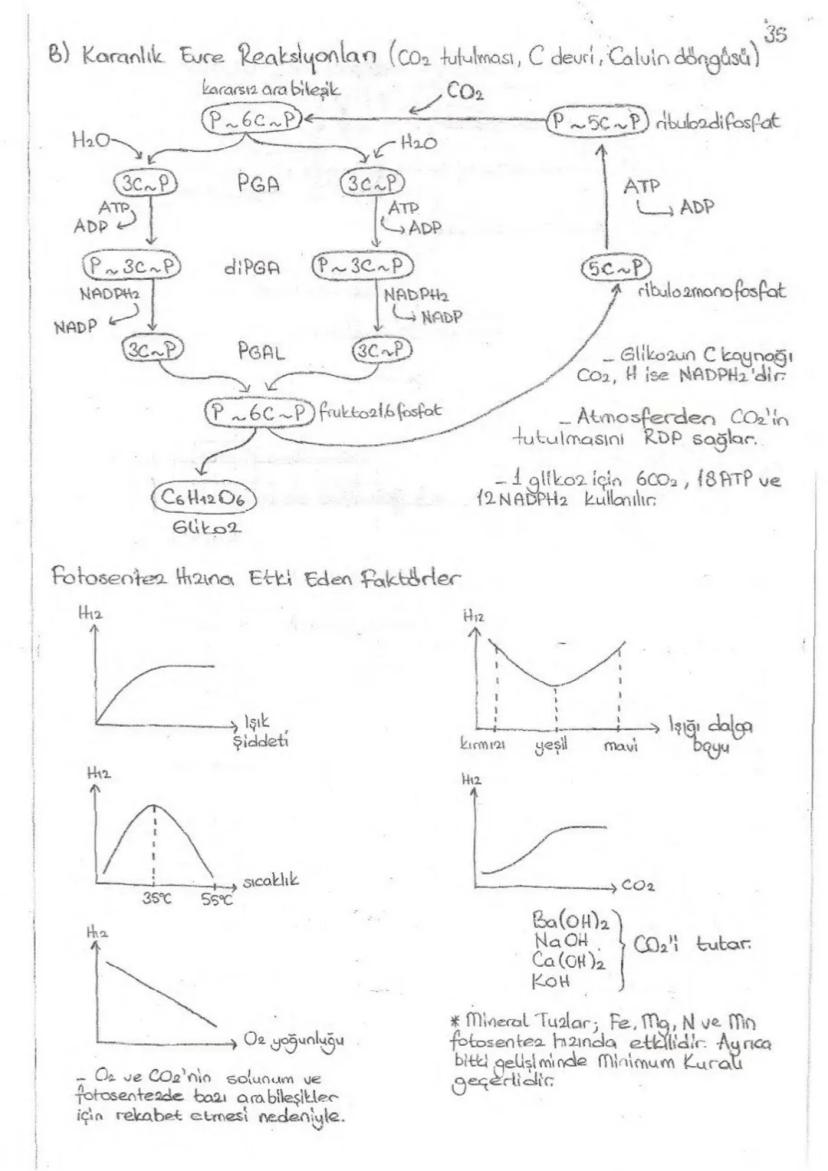 35
B) Karanlık Evre Reaksiyonları (CO2 tutulması, C devri, Calvin döngüsü)
kararsız ara bileşik
CO2
P~6C~P
P~5C~P ribulozdifosfat
H2O
H2O
3C~P PGA 3C~P
ATP
ADP
ATP
ADP
ATP
ADP
P~3C~P diPGA P~3C~P
5C~P
ribulozmonofosfat
NADPH2
NADP
NADPH2
NADP
3C~P PGAL 3C~P
P~6C~P fruktoz1,6fosfat
C6H12O6
Glikoz
- Glikozun C kaynağı
CO2, H ise NADPH2'dir.
- Atmosferden CO2'in
tutulmasını RDP sağlar.
- 1 glikoz için 6CO2, 18ATP ve
12NADPH2 kullanılır.
Fotosentez Hızına Etki Eden Faktörler
Hız
Işık
şiddeti
Hız
kırmızı yeşil mavi
Işığı dalga
boyu
Hız
35°C 55°C
sıcaklık
Hız
CO2
Ba(OH)2
NaOH
Ca(OH)2
KOH
CO2'i tutar.
Hız
O2 yoğunluğu
- O2 ve CO2'nin solunum ve
fotosentezde bazı arabileşikler
için rekabet etmesi nedeniyle.
* Mineral Tuzlar; Fe, Mg, N ve Mn
fotosentez hızında etkilidir. Ayrıca
bitki gelişiminde Minimum Kuralı
geçerlidir.